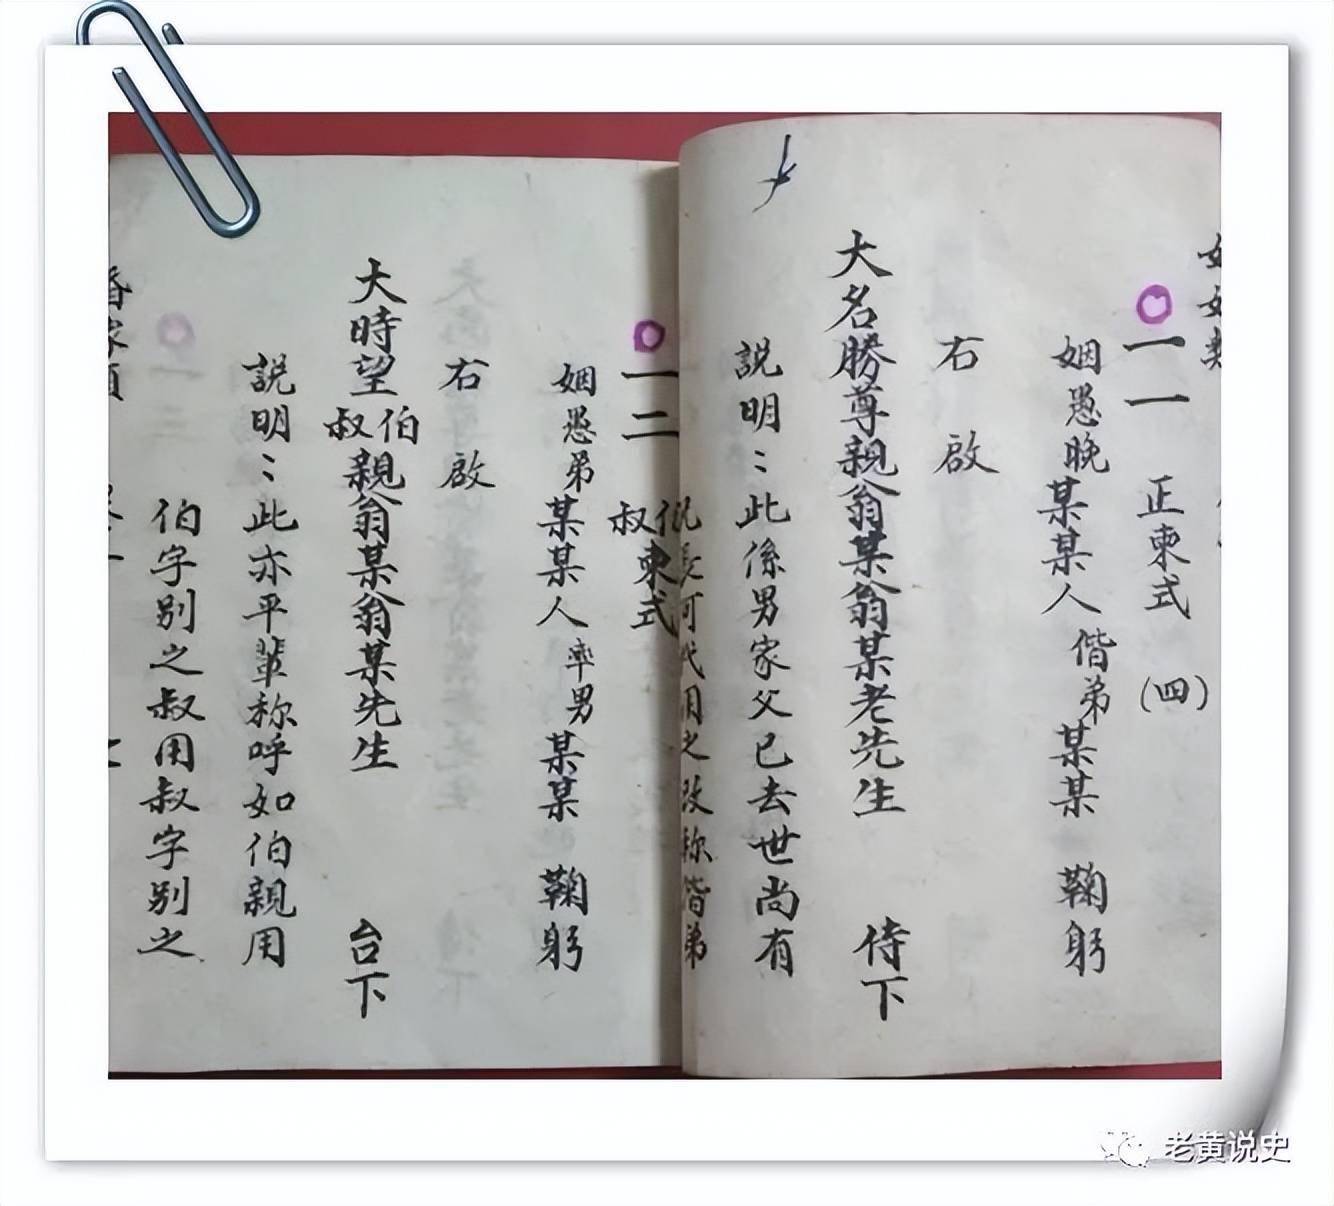 一一 正柬式 (四)
姻愚晚某某人 偕弟某某 鞠躬
右 啟
大名勝尊親翁某翁某老先生 侍下
説明:此係男家父已去世尚有
兄長可代用之改称偕弟
一二 伯叔柬式
姻愚弟某某人 率男某某 鞠躬
右 啟
大時望伯叔親翁某翁某先生 台下
説明:此亦平輩称呼如伯親用
伯字别之叔用叔字别之
老黄说史